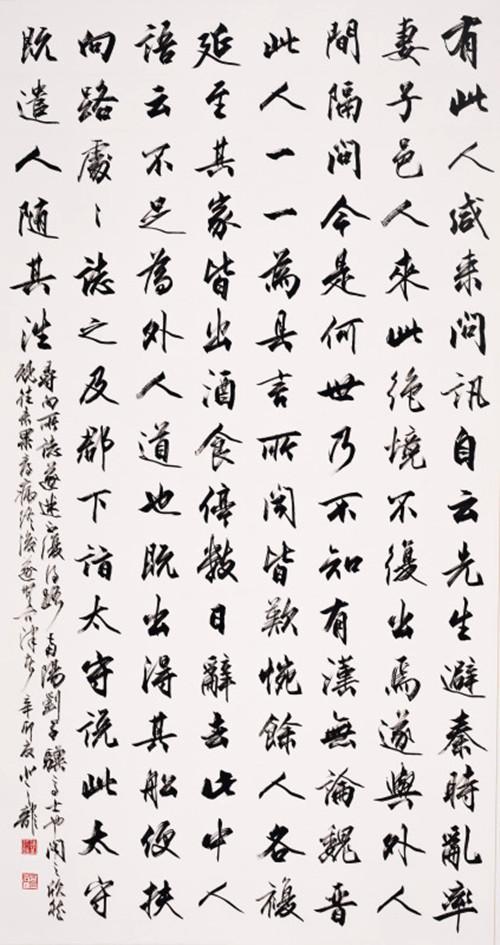 有此人咸来問訊自云先生避秦時亂率
妻子邑人來此絶境不復出焉遂與外人
間隔問今是何世乃不知有漢無論魏晋
此人一一為具言所闻皆歎惋餘人各複
延至其家皆出酒食停数日辭去此中人
語云不足為外人道也既出得其船便扶
向路處〻誌之及郡下詣太守説此太守
既遣人随其往
尋向所誌遂迷不復得路南陽劉子驥高士也聞之欣然
規往未果尋病終後遂無問津者辛卯夏龍